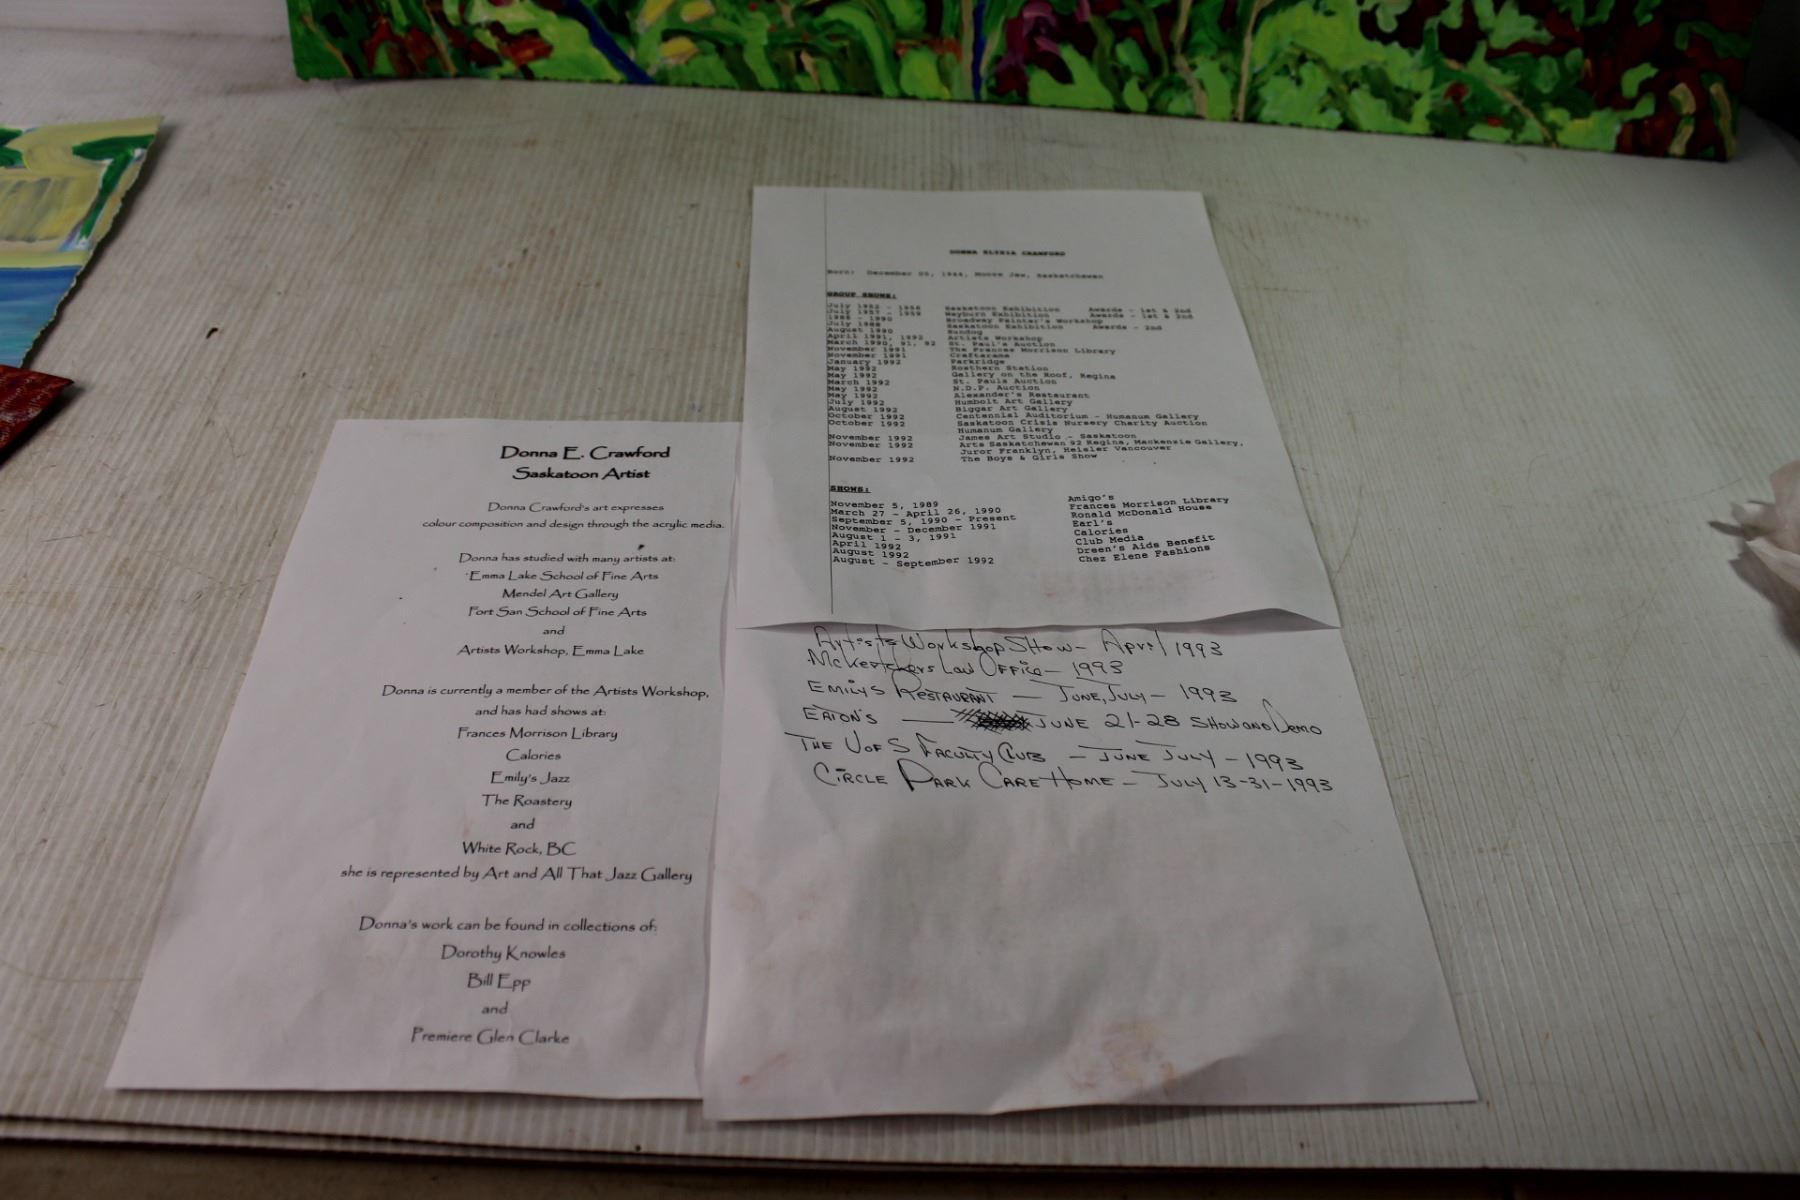 Donna E. Crawford
Saskatoon Artist
Donna Crawford's art expresses
colour composition and design through the acrylic media.
Donna has studied with many artists at:
Emma Lake School of Fine Arts
Mendel Art Gallery
Fort San School of Fine Arts
and
Artists Workshop, Emma Lake
Donna is currently a member of the Artists Workshop,
and has had shows at:
Frances Morrison Library
Calories
Emily's Jazz
The Roastery
and
White Rock, BC
she is represented by Art and All That Jazz Gallery
Donna's work can be found in collections of:
Dorothy Knowles
Bill Epp
and
Premiere Glen Clarke
DONNA CRAWFORD
Born: December 1944, Moose Jaw, Saskatchewan
GROUP SHOWS:
July 1952 - 1956 Saskatoon Exhibition Awards - 1st & 2nd
July 1957 - 1959 Weyburn Exhibition Awards - 1st & 2nd
1988 - 1990 Broadway Painter's Workshop
July 1988 Saskatoon Exhibition Awards - 2nd
August 1990 Sundog
April 1991, 1992 Artists Workshop
March 1990, 91, 92 St. Paul's Auction
November 1991 The Frances Morrison Library
November 1991 Craftarama
January 1992 Parkridge
May 1992 Rosthern Station
May 1992 Gallery on the Roof, Regina
March 1992 St. Pauls Auction
May 1992 N.D.P. Auction
May 1992 Alexander's Restaurant
July 1992 Humbolt Art Gallery
August 1992 Biggar Art Gallery
October 1992 Centennial Auditorium - Humanum Gallery
October 1992 Saskatoon Crisis Nursery Charity Auction
Humanum Gallery
November 1992 James Art Studio - Saskatoon
November 1992 Arts Saskatchewan 92 Regina, Mackenzie Gallery,
Juror Franklyn, Heisler Vancouver
November 1992 The Boys & Girls Show
SHOWS:
November 5, 1989 Amigo's
March 27 - April 26, 1990 Frances Morrison Library
September 5, 1990 - Present Ronald McDonald House
November - December 1991 Earl's
August 1 - 3, 1991 Calories
April 1992 Club Media
August 1992 Dreen's Aids Benefit
August - September 1992 Chez Elene Fashions
Artists Workshop Show - April 1993
McKerchers Law Office - 1993
Emilys Restaurant - June, July - 1993
Eaton's - June 21-28 Show and Demo
The U of S Faculty Club - June July - 1993
Circle Park Care Home - July 13-31-1993